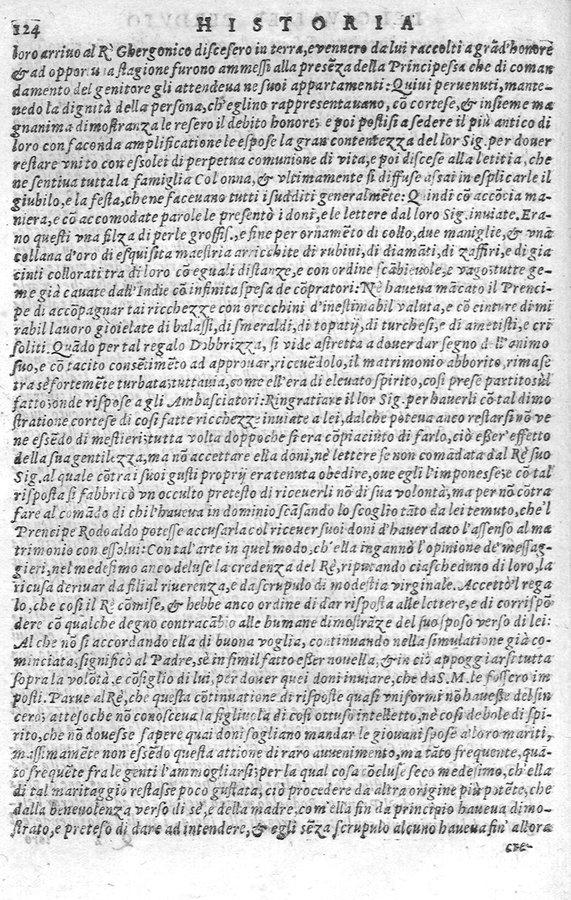 124 HISTORIA
loro arriuo al Rè Ghergonico discesero in terra, e vennero da lui raccolti a grād'honore
& ad opportuna stagione furono ammessi alla presēza della Principessa che di coman
damento del genitore gli attendeua ne suoi appartamenti: Quiui peruenuti, mante-
nedo la dignità della persona, ch'eglino rappresentauano, cō cortese, & insieme ma
gnanima dimostranza le resero il debito honore; e poi postisi a sedere il più antico di
loro con faconda amplificatione le espose la gran contentezza del lor Sig. per douer
restare vnito con essolei di perpetua comunione di vita, e poi discese alla letitia, che
ne sentiua tutta la famiglia Colonna, & vltimamente si diffuse assai in esplicarle il
giubilo, e la festa, che ne faceuano tutti i sudditi generalmēte: Quindi cō accōcia ma
niera, e cō accomodate parole le presentò i doni, e le lettere dal loro Sig. inuiate. Era-
no questi vna filza di perle grossis., e fine per ornamēto di collo, due maniglie, & vna
collana d'oro di esquisita maestria arricchite di rubini, di diamāti, di zaffiri, e di gia
cinti collorati tra di loro cō eguali distanze, e con ordine scābieuole, e vago: tutte ge-
me già cauate dall'Indie cō infinita spesa de cōpratori: Nè haueua mācato il Prenci-
pe di accōpagnar tai ricchezze con orecchini d'inestimabil valuta, e cō cinture di mi
rabil lauoro gioielate di balassi, di smeraldi, di topatij, di turchesi, e di ametisti, e cri
soliti. Quādo per tal regalo Dobbrizza, si vide astretta a douer dar segno dell'animo
suo, e cō tacito consētimēto ad approuar, riceuēdolo, il matrimonio abborito, rimase
tra sè fortemēte turbata; tuttauia, come ell'era di eleuato spirito, così prese partito sul
fatto; onde rispose a gli Ambasciatori: Ringratiare il lor Sig. per hauerli cō tal dimo
stratione cortese di così fatte ricchezze inuiate a lei, dal che poteua anco restarsi nō ve
ne essēdo di mestieri; tutta volta doppoche si era cōpiaciuto di farlo, ciò esser effetto
della sua gentilezza, ma nō accettare ella doni, ne lettere se non comādata dal Rè suo
Sig. al quale cōtra i suoi gusti proprij era tenuta obedire, oue egli l'imponesse; e cō tal
risposta si fabbricò vn occulto pretesto di riceuerli nō di sua volontà, ma per nō cōtra
fare al comādo di chi l'haueua in dominio scāsando lo scoglio tāto da lei temuto, che'l
Prencipe Rodoaldo potesse accusarla col riceuer suoi doni d'hauer dato l'assenso al ma
trimonio con essolui: Con tal'arte in quel modo, ch'ella ingannò l'opinione de' messag-
gieri, nel medesimo anco deluse la credenza del Rè, riputando ciascheduno di loro, la
ricusa deriuar da filial riuerenza, e da scrupulo di modestia virginale. Accettò'l rega
lo, che così il Rè cōmise, & hebbe anco ordine di dar risposta alle lettere, e di corrispō
dere cō qualche degno contracābio alle humane dimostrāze del suo sposo verso di lei:
Al che nō si accordando ella di buona voglia, continuando nella simulatione già co-
minciata, significò al Padre, sè in simil fatto esser nouella, & in ciò appoggiarsi tutta
sopra la volōtà, e cōsiglio di lui, per douer quei doni inuiare, che da S. M. le fossero im
posti. Parue al Rè, che questa cōtinuatione di risposte quasi vniformi nō hauesse del sin
cero; atteso che nō conosceua la figliuola di così ottuso intelletto, nè così debole di spi-
rito, che nō douesse sapere quai doni sogliano mandar le giouani spose a loro mariti,
massimamēte non essēdo questa attione di raro auuenimento, ma tāto frequente, quā-
to frequēte fra le genti l'ammogliarsi; per la qual cosa cōcluse seco medesimo, ch'ella
di tal maritaggio restasse poco gustata, ciò procedere da altra origine più potēte, che
dalla beneuolenza verso di sè, e della madre, com'ella fin da principio haueua dimo-
strato, e preteso di dare ad intendere, & egli sēza scrupulo alcuno haueua fin' allora
cre-